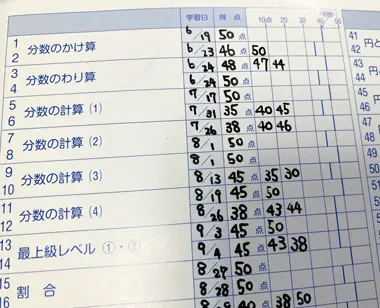 学習日 得点 10点 20 30 40 50
1 分数のかけ算 6/19 50点
2 6/23 46点 50
3 分数のわり算 6/24 48点 47 44
4 6/24 50点
5 分数の計算 (1) 7/17 50点
6 7/31 35点 40 45
7 分数の計算 (2) 7/26 38点 40 46
8 8/1 50点
9 分数の計算 (3) 8/1 50点
10 8/13 45点 35 30
11 分数の計算 (4) 8/19 45点 50
12 8/26 38点 43 44
13 最上級レベル ①・② 9/3 45点 50
14 9/4 45点 43 38
15 割合 8/27 50点
16 8/28 50点
40点 38 50
41 円と
42
43
44